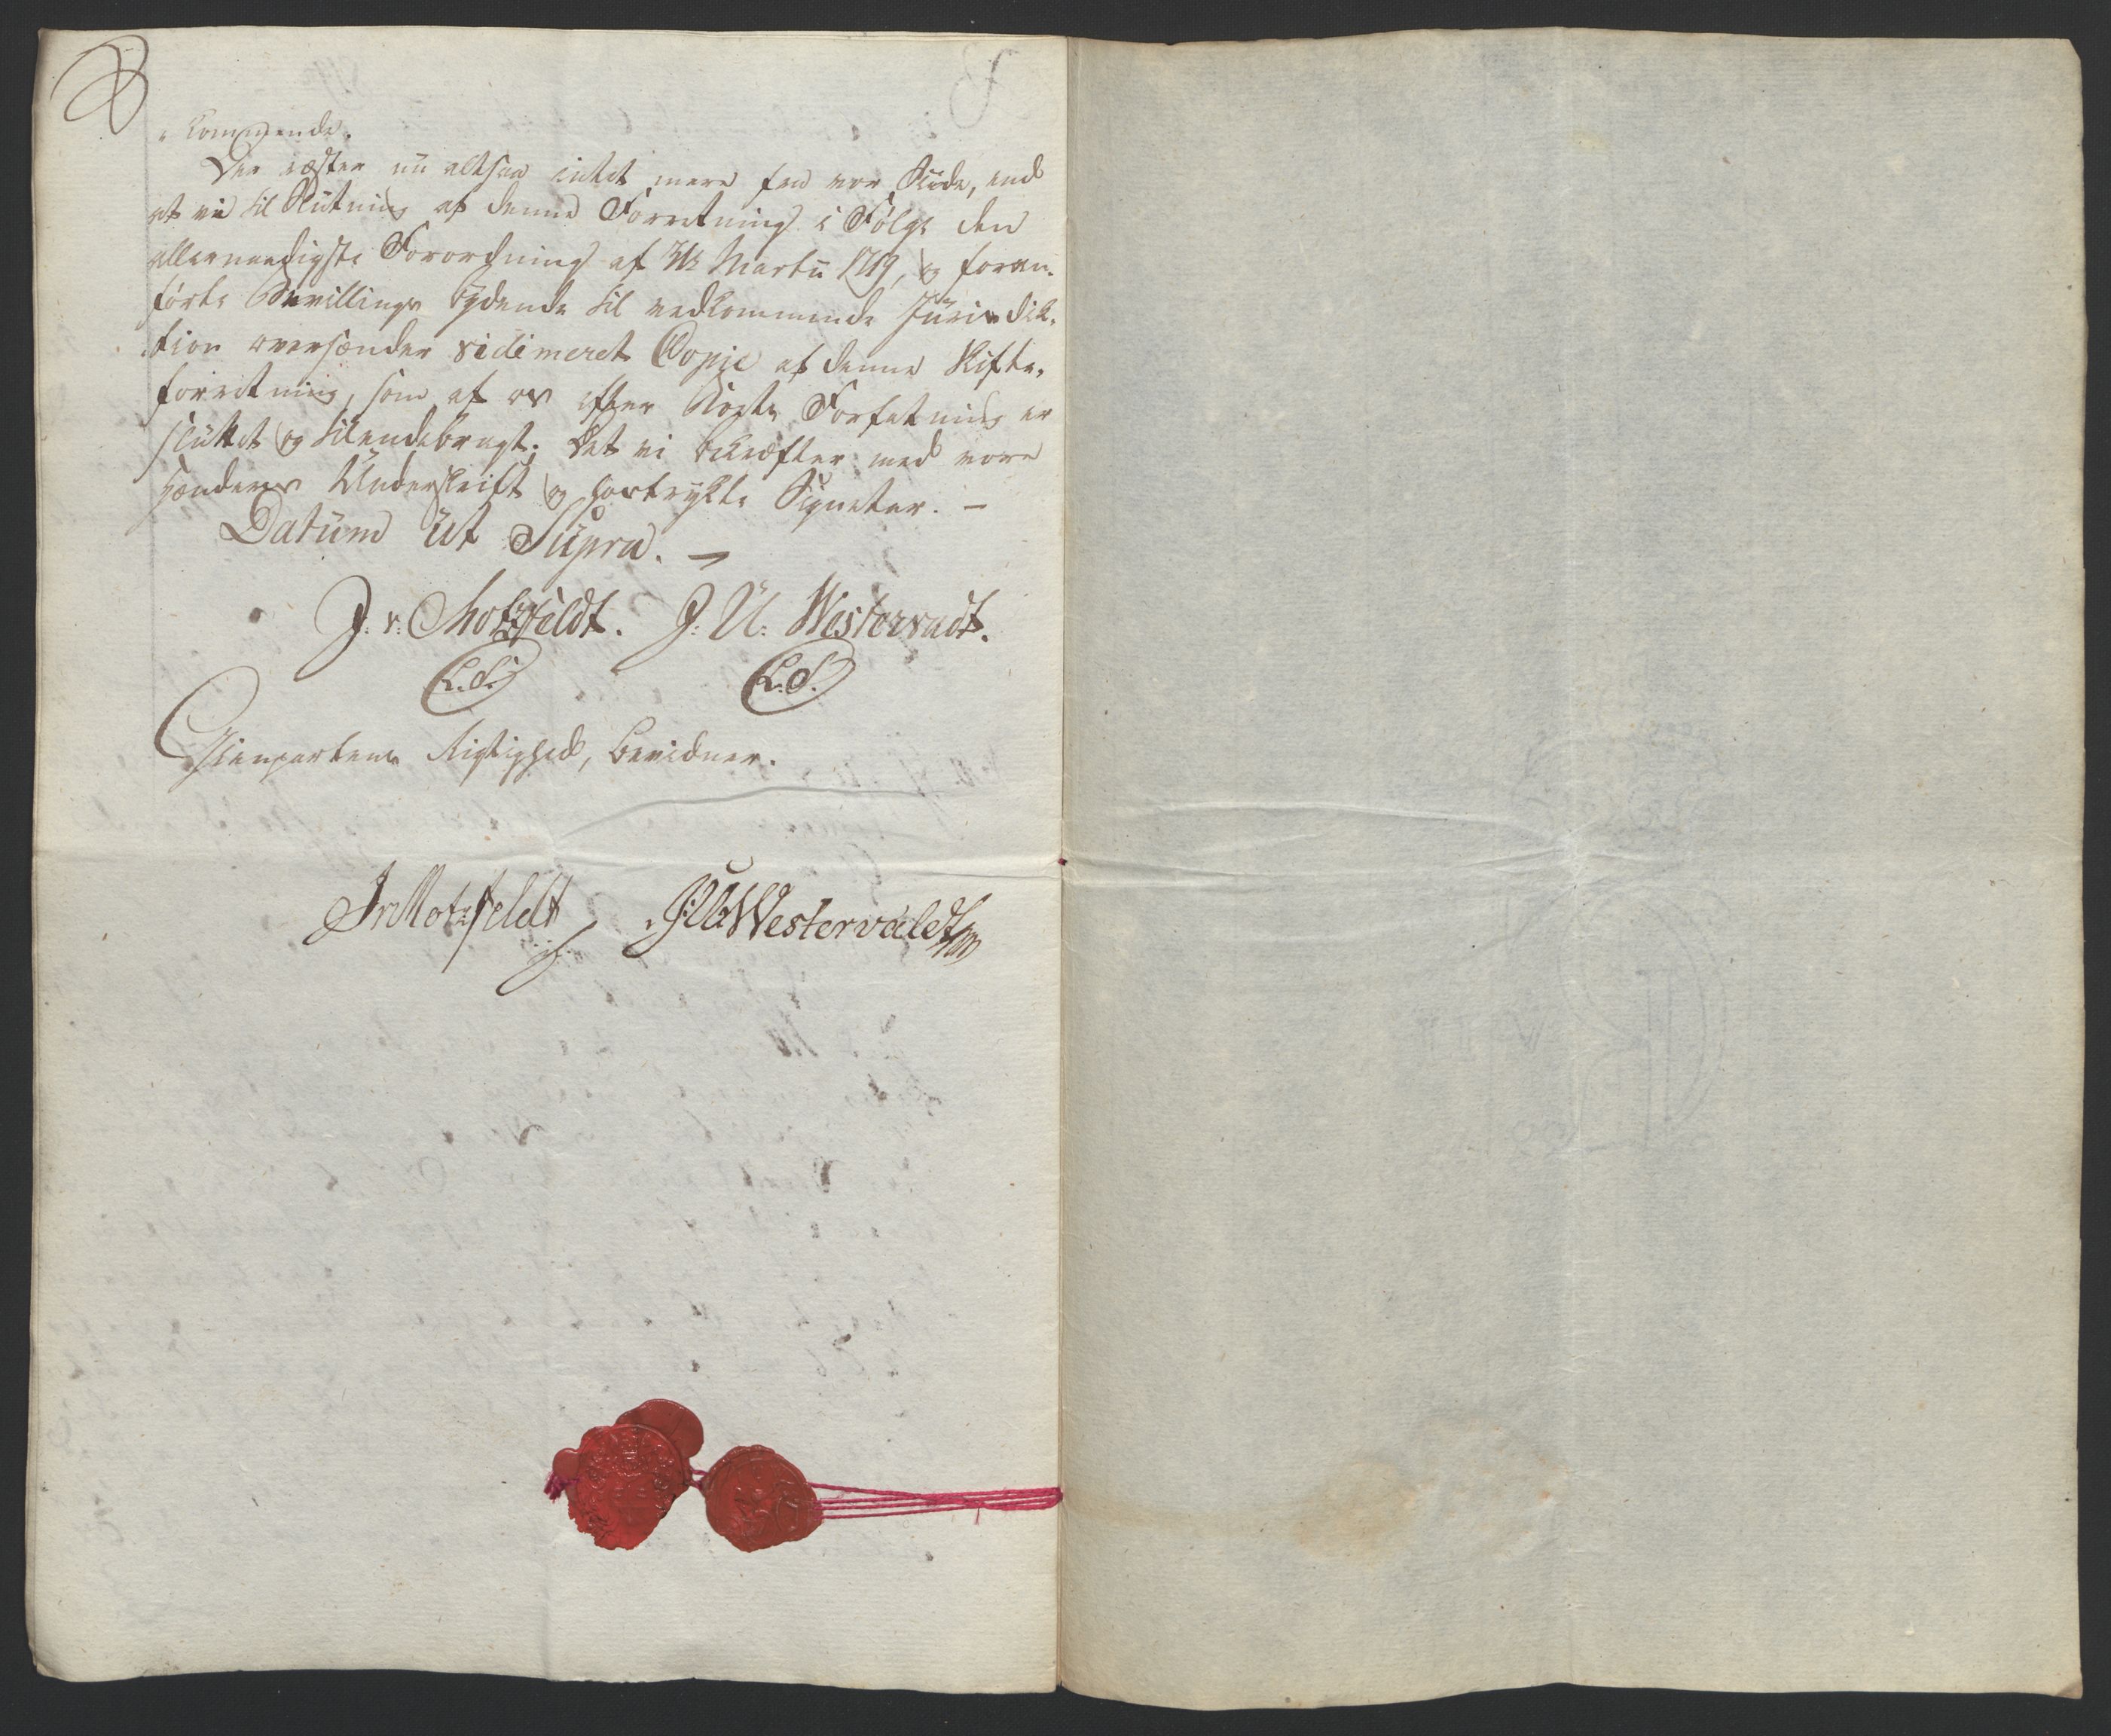 kommende.
Der ræster nu altsaa intet mere fra vor Side, end
at vi til Slutning af denne Forretning i Følge den
allernaadigste Forordning af Martii 1719, og foran-
førte Bevillings bydende til vedkommende Jurisdik-
tion oversænder vidimeret Copie af denne Skifte-
forretning, som af os efter Forfatning er
sluttet og tilendebragt; det vi bekræfter med vore
Hænders Underskrift og hostrykte Signeter. —
Datum Ut Supra. —
J: v: Motzfeldt. J: U: Westervaldt.
L.S. L.S.
Gienpartens Rigtighed, bevidner.
JvMotzfeldt J:U:Westervaldt